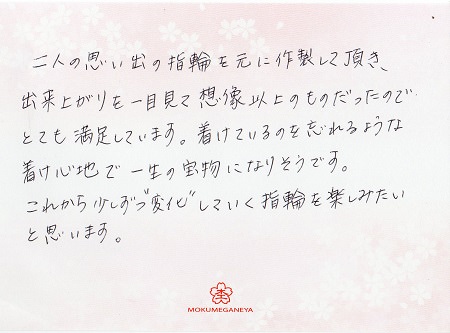 二人の思い出の指輪を元に作製して頂き、
出来上がりを一目見て想像以上のものだったので
とても満足しています。着けているのを忘れるような
着け心地で一生の宝物になりそうです。
これから少しずつ"変化"していく指輪を楽しみたい
と思います。
MOKUMEGANEYA